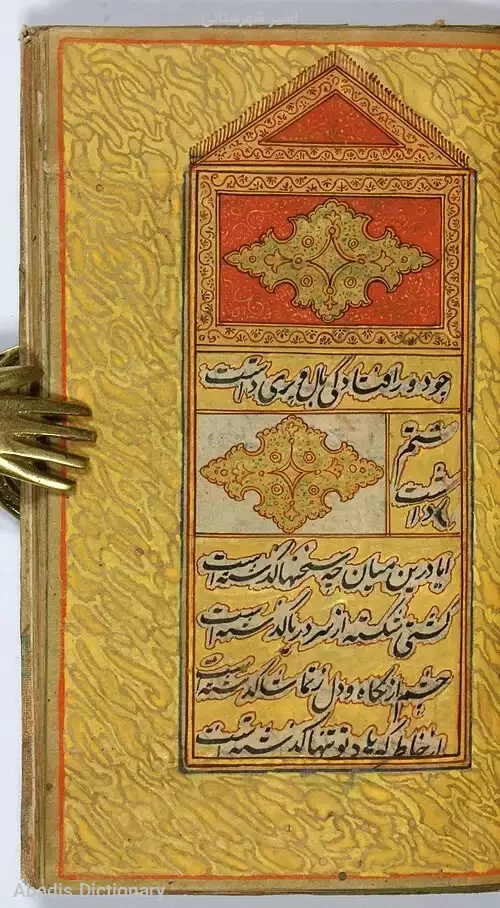 اسیر شهرستانی
چو دور افتادگی بال و پری داشت
ستم
داشت
ایا درین میان چه سخنها گذشته است
کشتی شکسته از سر دریا گذشته است
چشم از نگاه و دل ز تمنا گذشته است
از خاطر که یاد تو تنها گذشته است
Abadis Dictionary